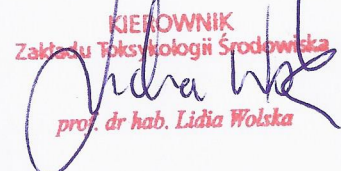 KIEROWNIK
Zakładu Toksykologii Środowiska
Lidia Wolska
prof. dr hab. Lidia Wolska